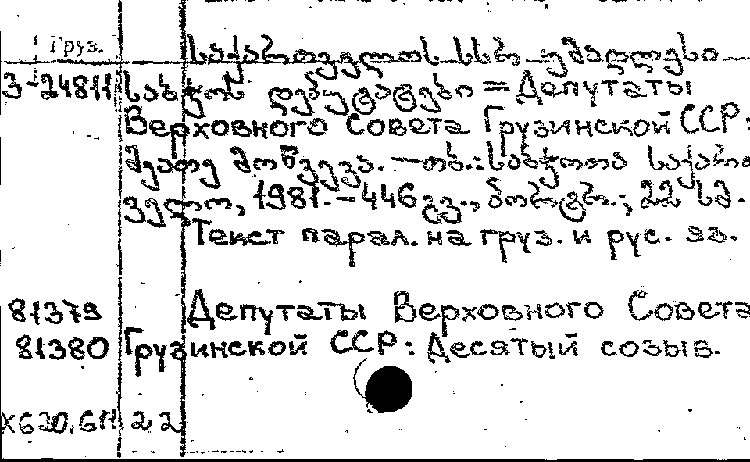 Груз.
საქართველოს სსრ უმაღლესი
3-24811 საბჭოს დეპუტატები = Депутаты
Верховного Совета Грузинской ССР:
მეათე მოწვევა. — თბ.: საბჭოთა საქართ
ველო, 1981. — 446 გვ., პორტრ.; 22 სმ.
Текст парал. на груз. и рус. яз.
81379 Депутаты Верховного Совета
81380 Грузинской ССР: Десятый созыв.
X620.611 22